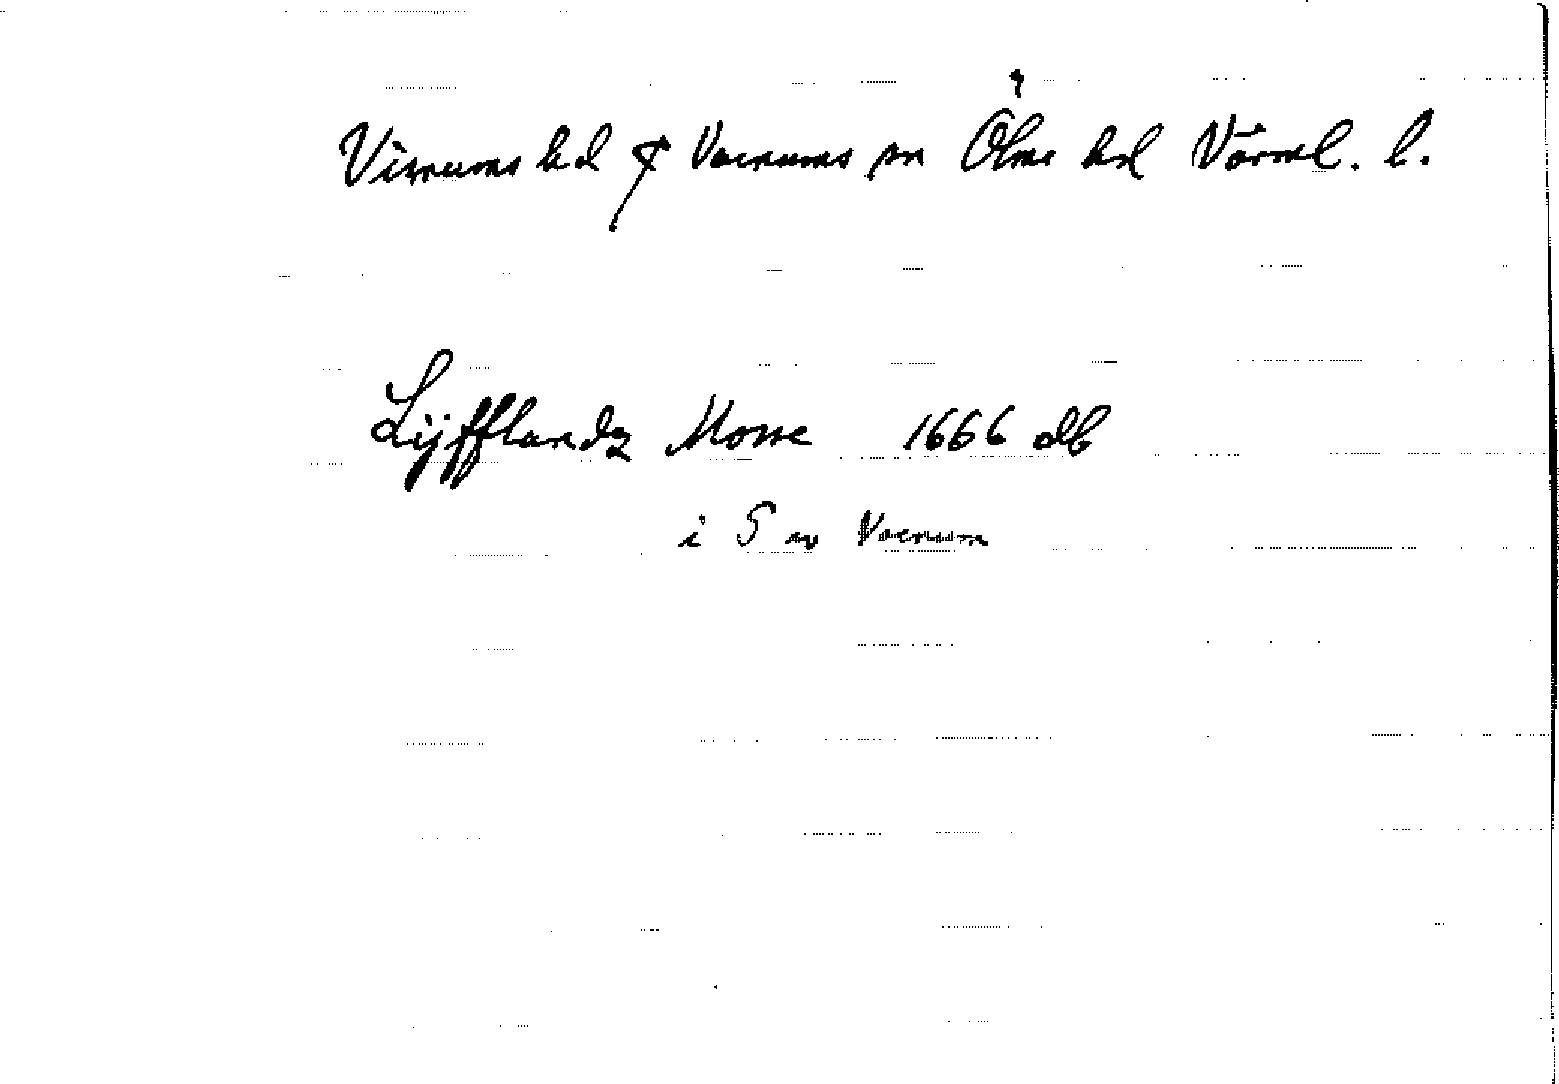 Visnums hd ₵ Varnums sn Ölme hd Värml. l.
Lÿfflandz Mosse 1666 db
i S v Varnum